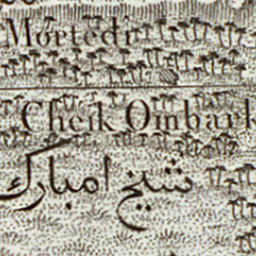 Mortedi
Cheik Ombark
شيخ امبارك